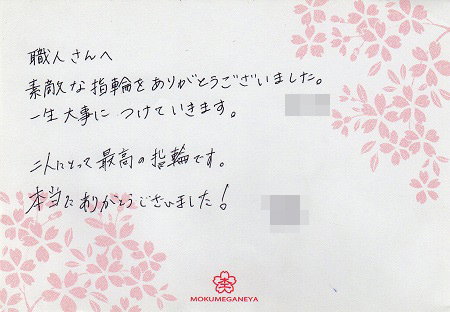 職人さんへ
素敵な指輪をありがとうございました。
一生大事につけていきます。
二人にとって最高の指輪です。
本当にありがとうございました!
MOKUMEGANEYA